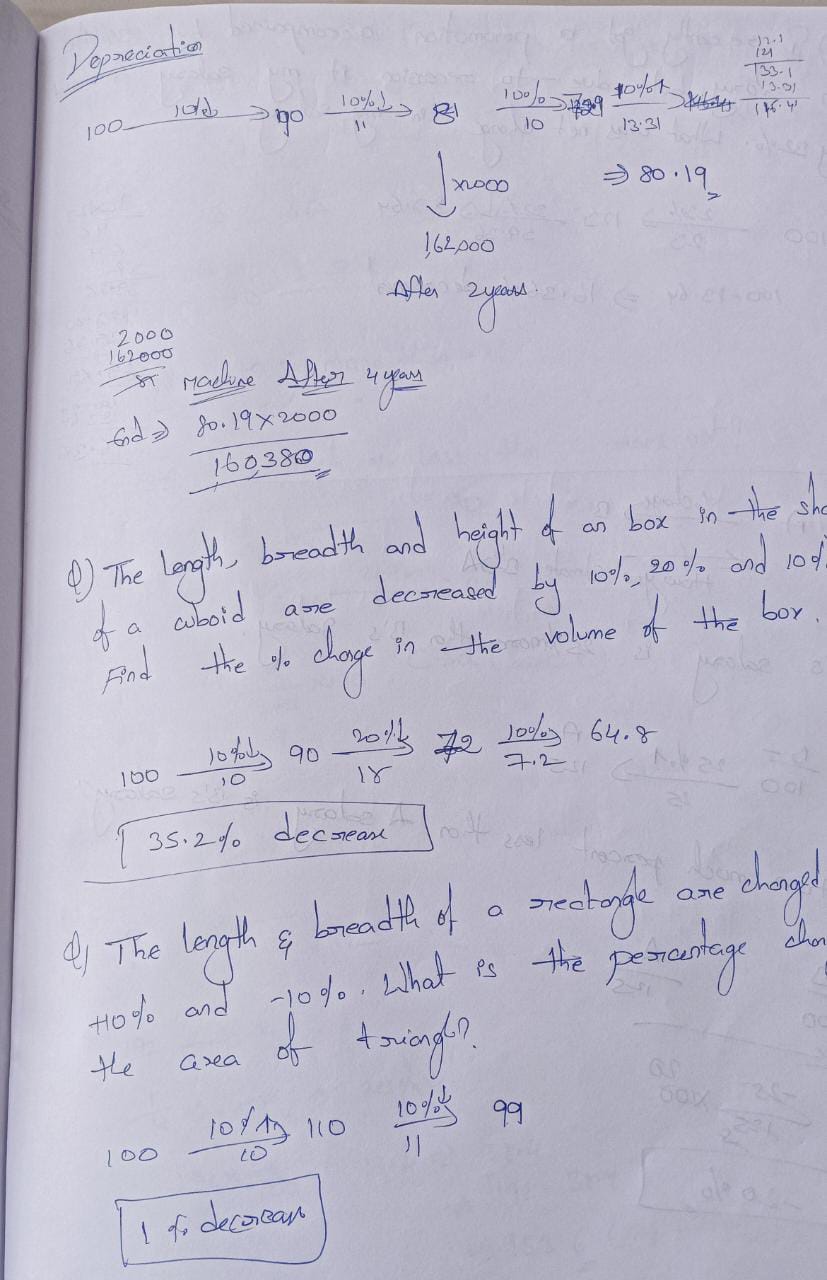 Depreciation
12.1
121
133.1
13.31
146.41
100 10%↓ → 90 10%↓ 11 → 81 10% 10 → 10%↑ 13.31 →
↓ x2000 ⇒ 80.19
1,62,000
After 2years.
2000
162000
81
Machine After 4 years
End ⇒ 80.19 X 2000
160380
Q) The length, breadth and height of an box in the sha
of a cuboid are decreased by 10%, 20% and 10%
Find the % change in the volume of the box.
100 10%↓ 10 → 90 20%↓ 18 → 72 10% 7.2 → 64.8
35.2% decrease
Q) The length & breadth of a rectangle are changed
+10% and -10%. What is the percentage chan
the area of triangle?
100 10%↑ 10 → 110 10%↓ 11 → 99
1% decrease